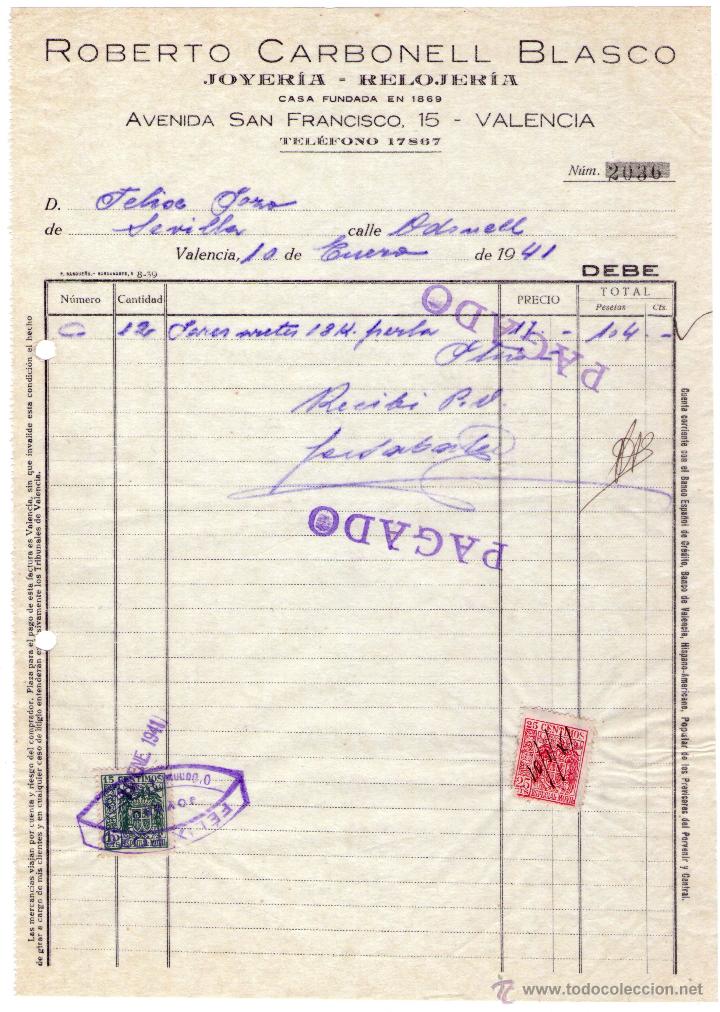 ROBERTO CARBONELL BLASCO
JOYERÍA - RELOJERÍA
CASA FUNDADA EN 1869
AVENIDA SAN FRANCISCO, 15 - VALENCIA
TELÉFONO 17867
Núm. 2036
D.
de Sevilla calle
Valencia, 10 de Enero de 1941
8-39
DEBE
Número Cantidad PRECIO TOTAL
Pesetas Cts.
12 perla 17 - 104 -
PAGADO
Recibi
PAGADO
Las mercancías viajan por cuenta y riesgo del comprador. Plaza para el pago de esta factura es Valencia, sin que invalide esta condición el hecho
de girar a cargo de mis clientes y en cualquier caso de litigio entenderán exclusivamente los Tribunales de Valencia.
Cuenta corriente con el Banco Español de Crédito, Banco de Valencia, Hispano-Americano, Popular de los Previsores del Porvenir y Central.
ENE 1941
15 CENTIMOS
FELIX
25 CENTIMOS
25 25
www.todocoleccion.net